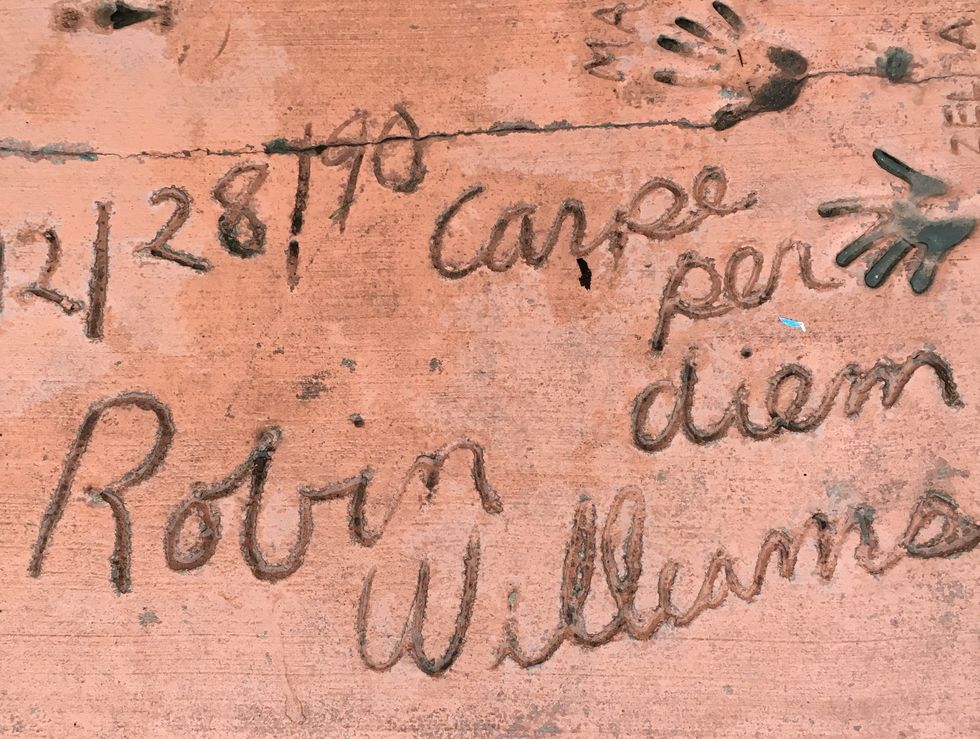 12/28/90
Carpe
per
diem
Robin
Williams
MA
ZELDA